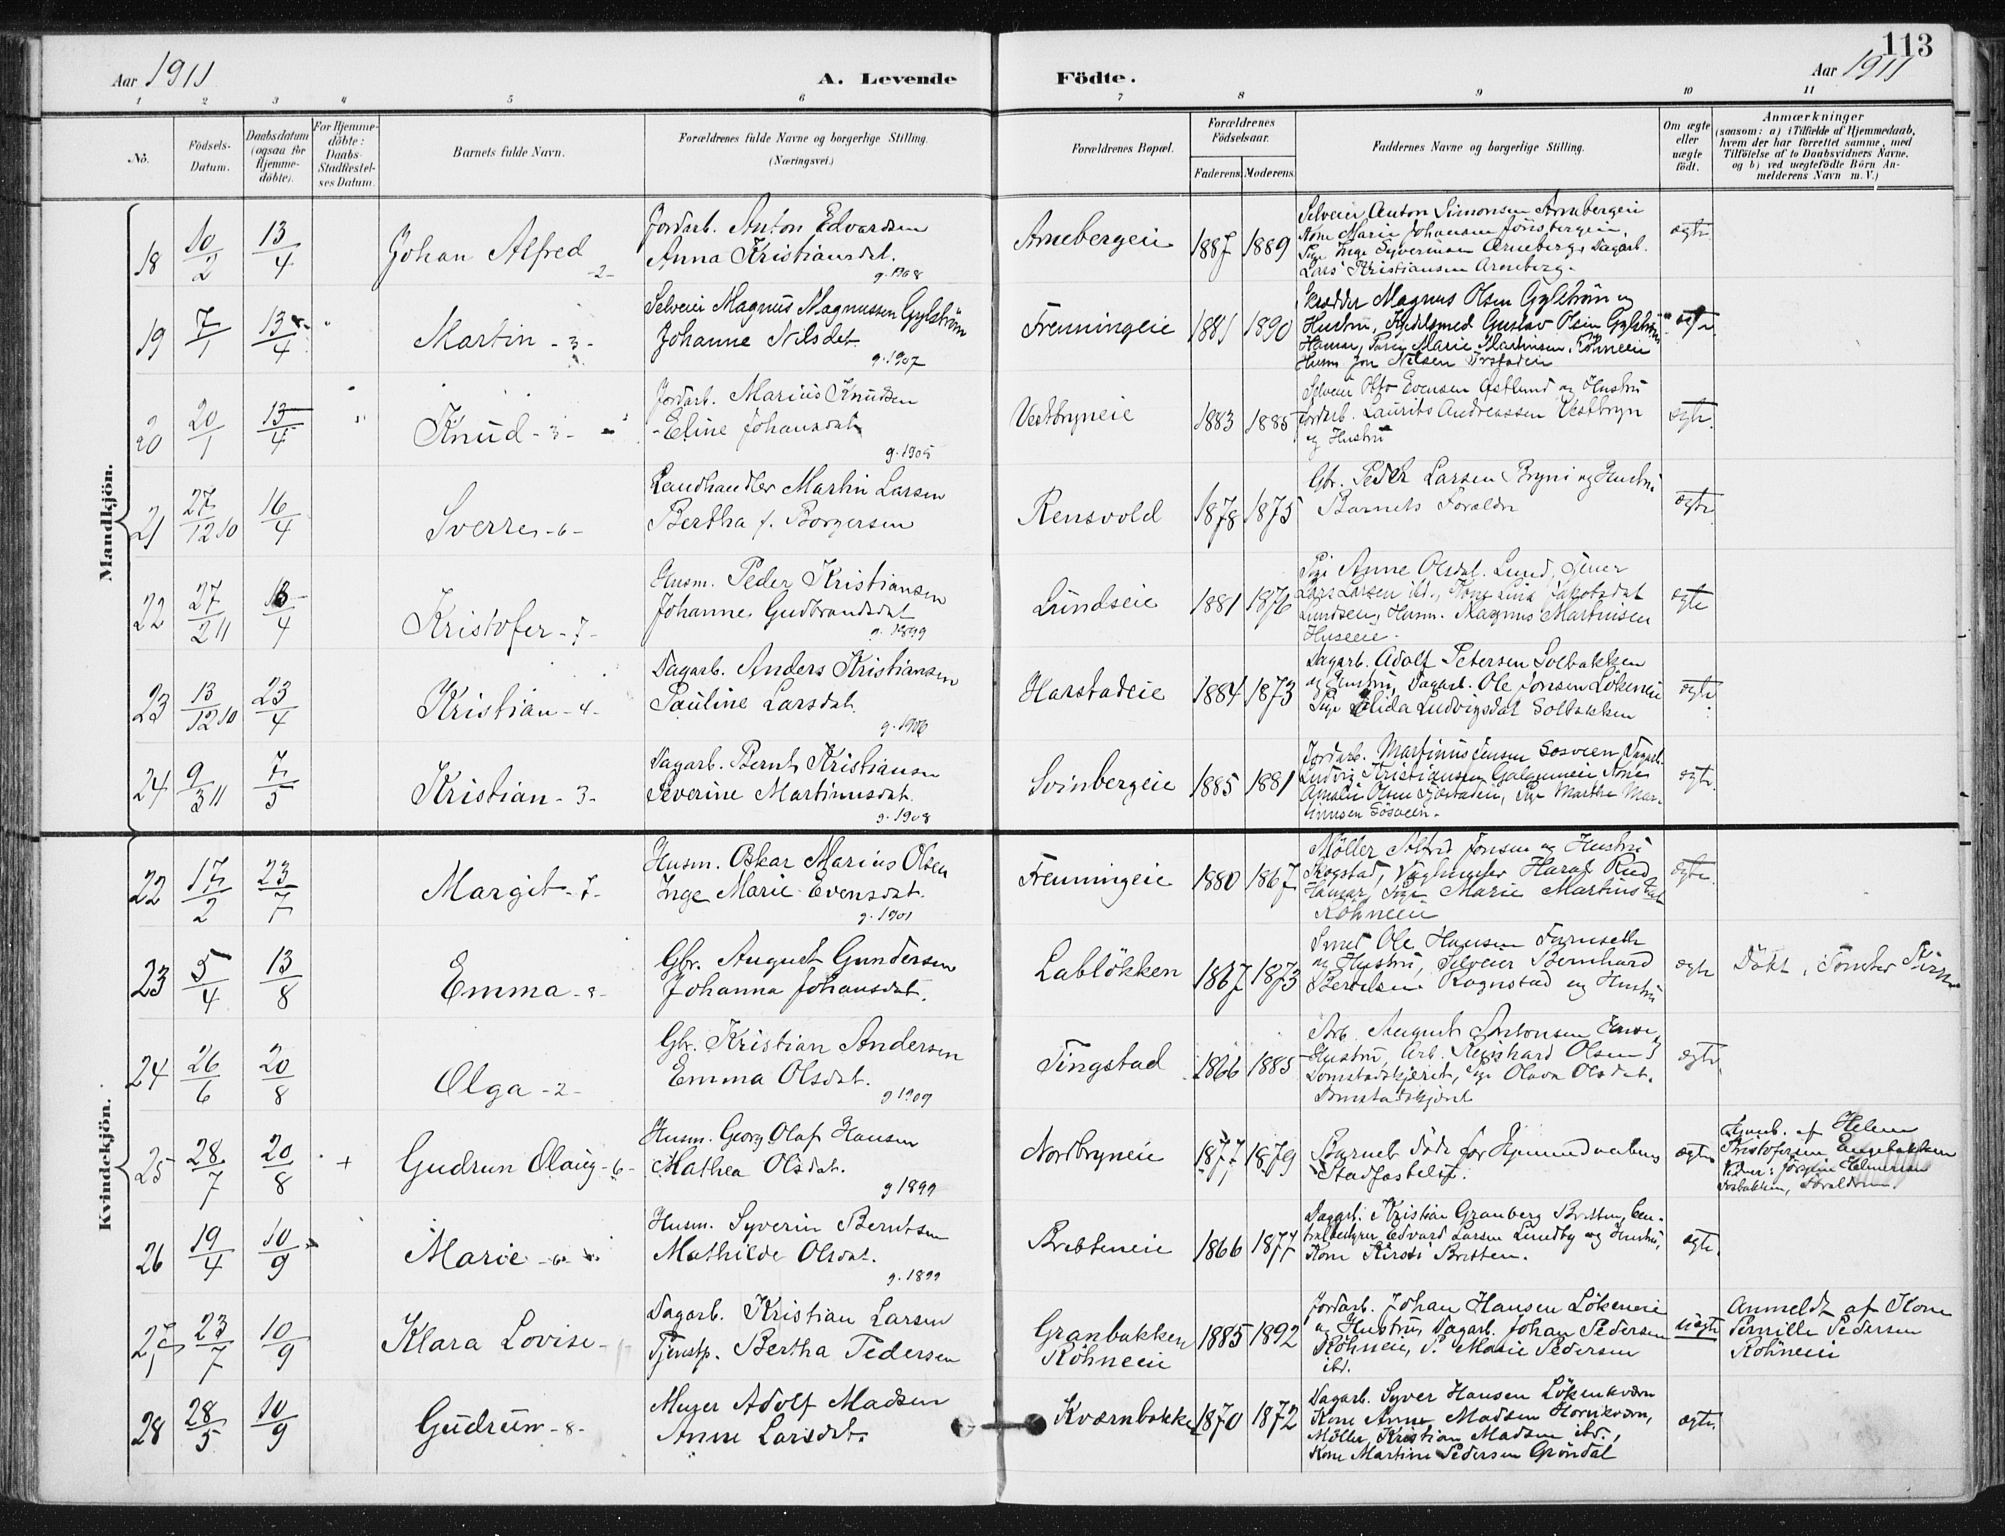 113
Aar 1911
A. Levende Födte.
Aar 1911
1 2 3 4 5 6 7 8 9 10 11
No.
Födsels-Datum.
Daabsdatum (ogsaa for Hjemme-döbte).
For Hjemme-döbte: Daabs-Stadfæstel-ses Datum.
Barnets fulde Navn.
Forældrenes fulde Navne og borgerlige Stilling.
(Næringsvei.)
Forældrenes Bopæl.
Forældrenes Födselsaar.
Faderens. Moderens.
Faddernes Navne og borgerlige Stilling.
Om ægte eller uægte födt.
Anmærkninger
(saasom: a) i Tilfælde af Hjemmedaab,
hvem der har forrettet samme, med
Tilföielse af to Daabsvidners Navne,
og b) ved uægtefödte Börn An-
melderens Navn m. V.)
Mandkjön.
18 10/2 13/4 Johan Alfred -2-
Jordarb. Anton Edvardsen
Anna Kristiansdat.
g. 1908
Arnebergeie 1887 1889
Selveier Anton Simonsen Arnebergeie
Kone Marie Johansen Jönsbergeie,
Pige Inge Syversen Arneberg, Dagarb.
Lars Kristiansen Arneberg.
ægte
19 7/1 13/4 " Martin -3-
Selveier Magnus Magnussen Gylström
Johanne Nilsdat.
g. 1907
Frenningeie 1881 1890
Skrædder Magnus Olsen Gylström og
Hustru, Kjedelsmed Gustav Olsen Gylström
Hamar, Pige Marie Martinsen, Röhneeie
Husm. Jon Nilsen
ægte.
20 20/1 13/4 " Knud -3-
Jordarb. Marius Knudsen
Eline Johansdat.
g. 1905
Vestbryneie 1883 1885
Selveier Otto Evensen Østlund og Hustru
Jordarb. Laurits Andreassen Vestbryn
og Hustru
ægte.
21 27/12 10 16/4 Sverre -6-
Landhandler Martin Larsen
Bertha f. Borgersen
Rensvold 1878 1875
Gbr. Peder Larsen Bryni og Hustru
Barnets Forældre
ægte
22 27/2 11 /4 Kristofer -7-
Husm. Peder Kristiansen
Johanne Gudbrandsdat
g. 1899
Lundseie 1881 1876
Pige Anne Olsdat. Lund,
Lars Larsen ibd., Kone Jakobsdat
Lundseie, Husm. Magnus Martinsen
Huseeie.
ægte
23 13/12 10 23/4 Kristian -4-
Dagarb. Anders Kristiansen
Pauline Larsdat.
g. 1906
Harstadeie 1884 1873
Dagarb. Adolf Petersen Solbakken
og Hustru, Dagarb. Ole Jonsen Lökeneie
Pige Ludvigsdat Solbakken
ægte
24 9/3 11 7/5 Kristian -3-
Dagarb. Bernt Kristiansen
Severine Martinusdat.
g. 1908
Svinbergeie 1885 1881
Jordarb. Martinus Jensen Sosveen, Dagarb.
Ludvig Kristiansen Kone
Amalie Olsen Pige Marthe Mar-
tinusen Sösveen.
ægte.
Kvindekjön.
22 17/2 23/7 Margit -7-
Husm. Oskar Marius Olsen
Inge Marie Evensdat.
g. 1901
Frenningeie 1880 1867
Möller Alfred Jonsen og Hustru
Skogstad, Harald Rud
Hamar, Pige Marie Martinsdat
Röhneeie
ægte.
23 5/4 13/8 Emma -8-
Gbr. August Gundersen
Johanna Johansdat.
Lablökken 1867 1873
Smed Ole Hansen Farmseth
og Hustru, Selveier Bernhard
Bertelsen Rognstad og Hustru
ægte
Döbt i Tomter Kirke
24 26/6 20/8 Olga -2-
Gbr. Kristian Andersen
Emma Olsdat.
g 1909
Tingstad 1866 1885
Arb. August Antonsen
Hustru, Arb. Reinhard Olsen
Domstadskjæret, Pige Olava Olsdat.
Domstadskjæret
ægte.
25 28/7 20/8 + Gudrun Olaug -6-
Husm. Georg Olaf Hansen
Mathea Olsdat.
g 1899
Nordbryneie 1877 1879
Barnet döde för Hjemmedaabens
Stadfæstelse.
ægte
Hjemb. af Helene
Kristofersen Engebakken
Forældrene.
26 19/4 10/9 Marie -6-
Husm. Syverin Berntsen
Mathilde Olsdat.
g. 1899
Bretteneie 1866 1877
Dagarb. Kristian Granberg Britten, Cen-
tralbestyrer Edvard Larsen Lundby og Hustru,
Kone Kirsti Britten.
ægte.
27 23/7 10/9 Klara Lovise -
Dagarb. Kristian Larsen
Tjenstp. Bertha Pedersen
Granbakken
Röhneeie 1885 1892
Jordarb. Johan Hansen Lökeneie
og Hustru, Dagarb. Johan Pedersen
Röhneeie, P. Marie Pedersen
ibd.
uægte
Anmeldt af Kone
Pernille Pedersen
Röhneeie
28 28/5 10/9 Gudrun -8-
Murer Adolf Madsen
Anne Larsdat.
Kværnbakke 1870 1872
Dagarb. Syver Hansen Lökenkværn
Kone Anne Madsen Hornkværn,
Möller Kristian Madsen ibd.,
Kone Martine Pedersen Gröndal
ægte.